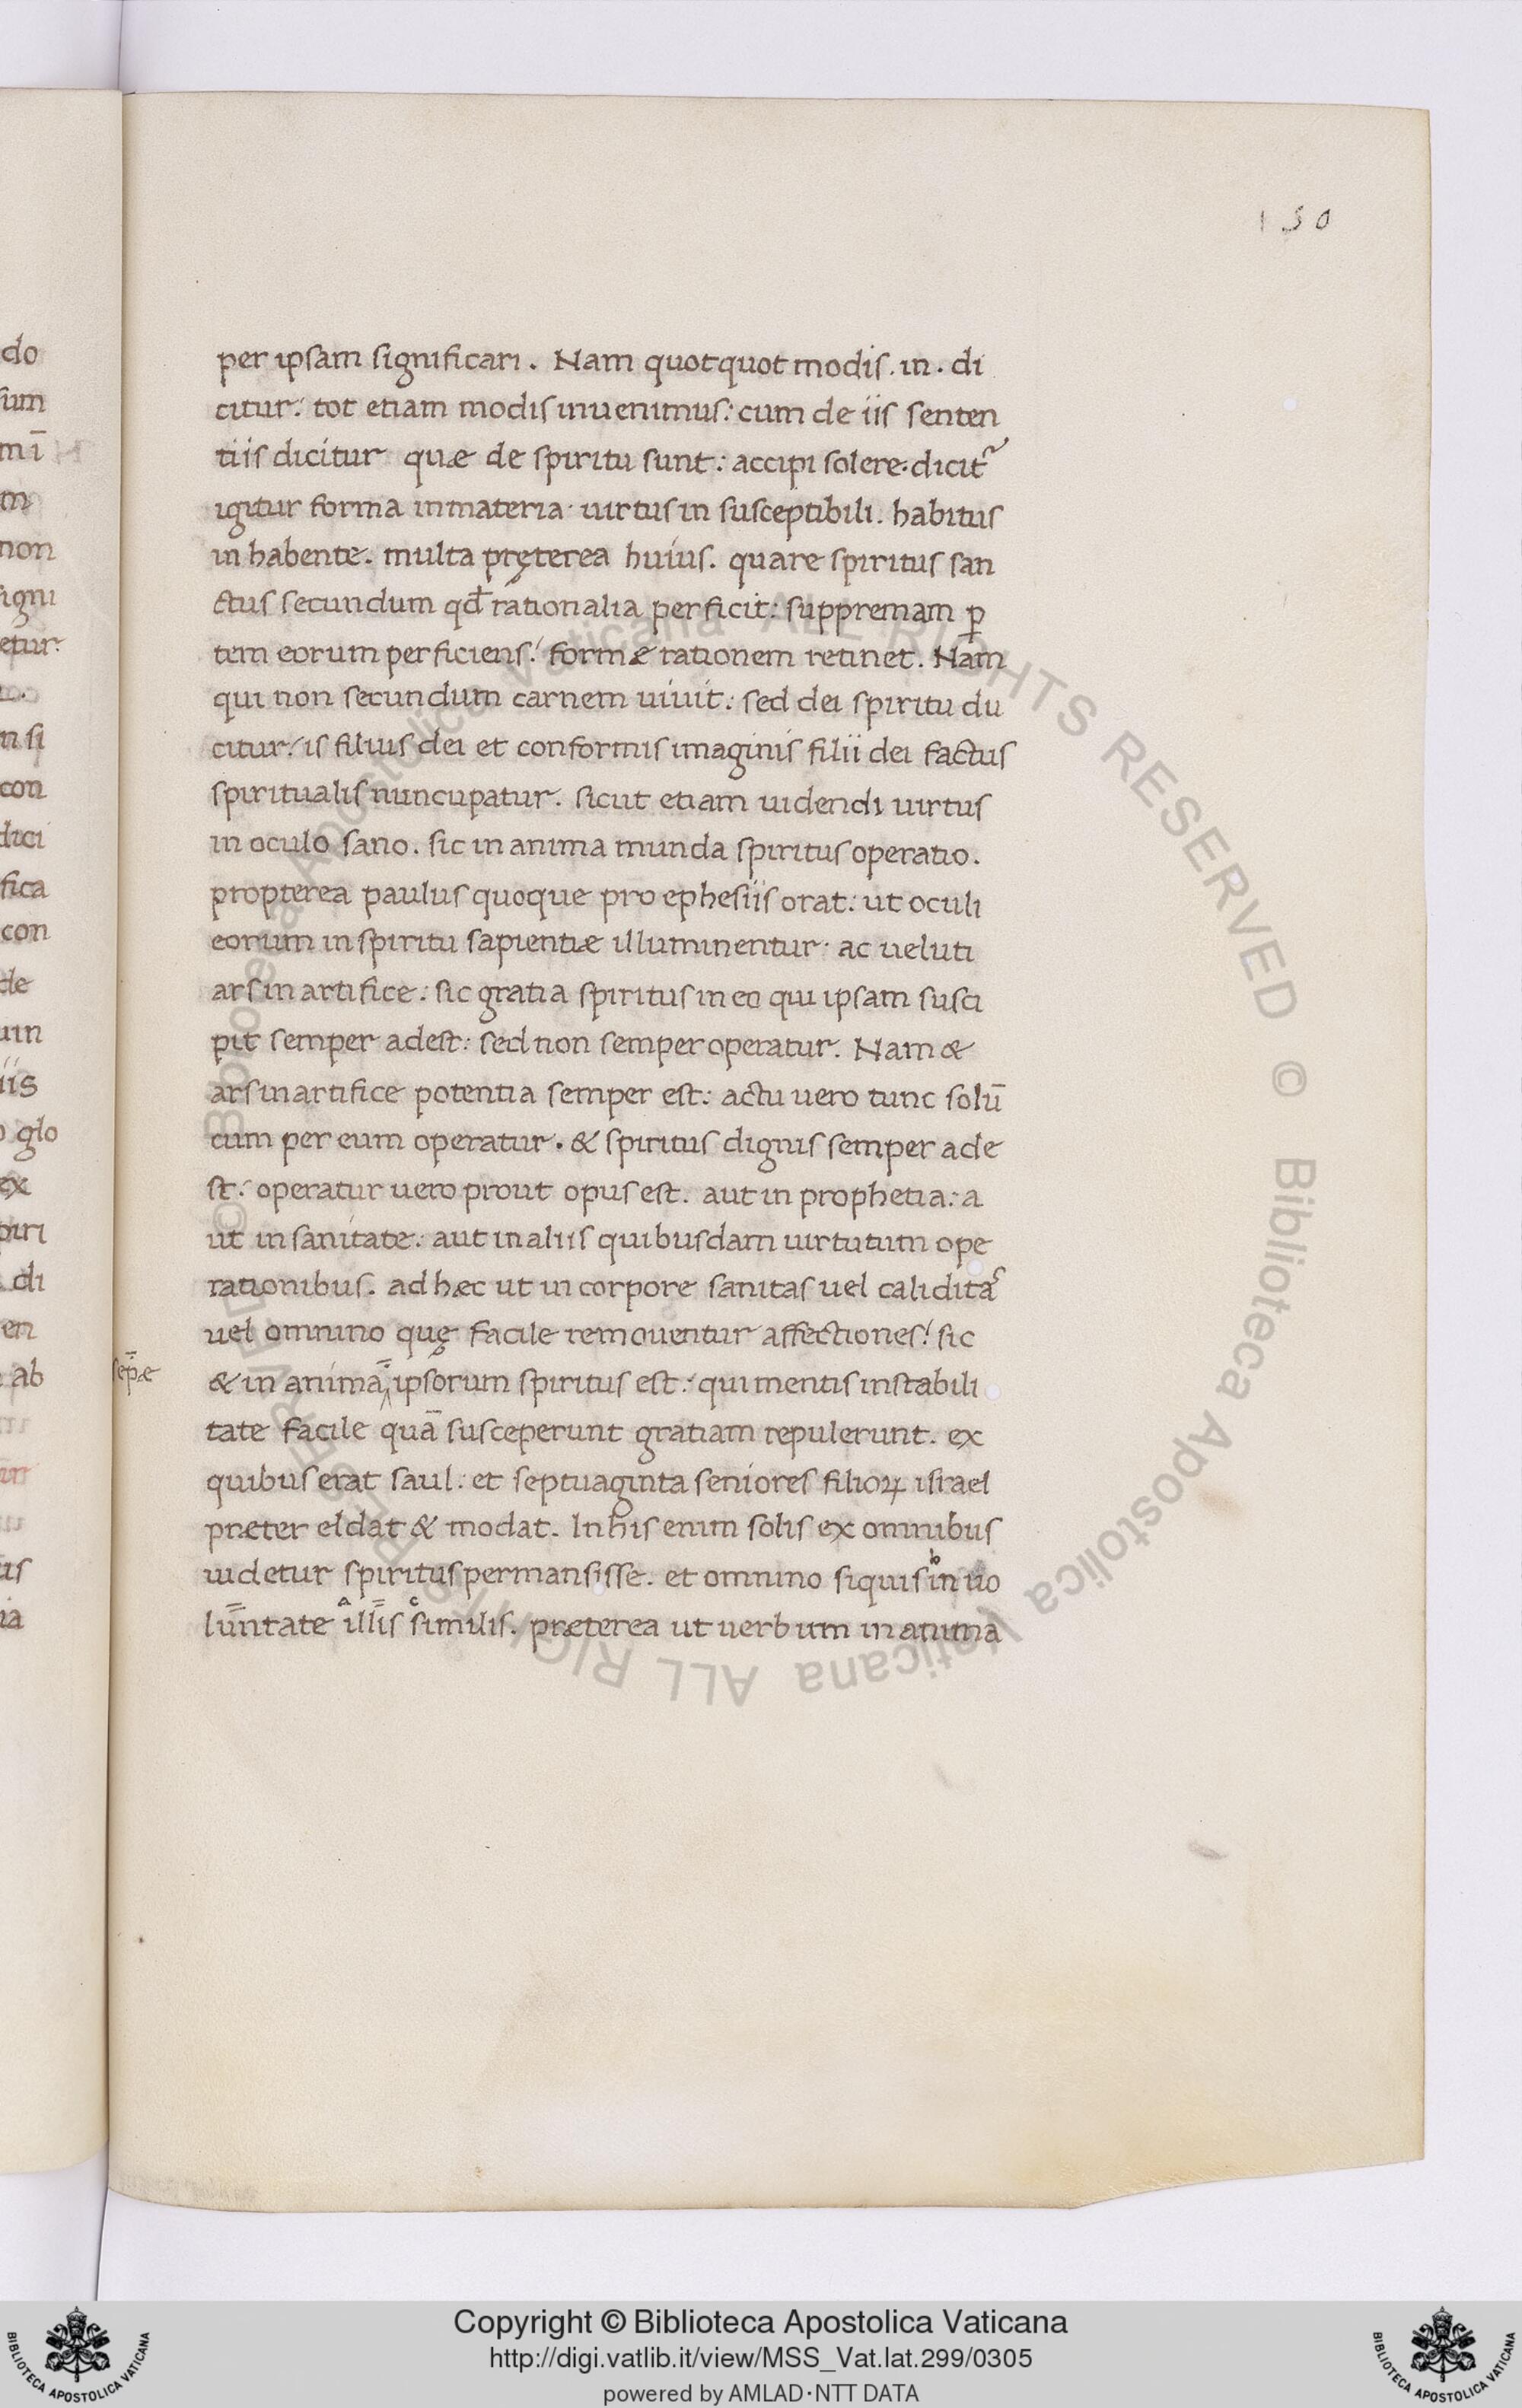 150
per ipsam significari. Nam quotquot modis. in. di
citur: tot etiam modis inuenimus: cum de iis senten
tiis dicitur quæ de spiritu sunt: accipi solere. dicit᷑
igitur forma in materia. uirtus in susceptibili. habitus
in habente. multa pręterea huius. quare spiritus san
ctus secundum qđ rationalia perficit: suppremam ꝑ
tem eorum perficiens: formæ rationem retinet. Nam
qui non secundum carnem uiuit: sed dei spiritu du
citur: is filius dei et conformis imaginis filii dei factus
spiritualis nuncupatur. sicut etiam uidendi uirtus
in oculo sano. sic in anima munda spiritus operatio.
propterea paulus quoque pro ephesiis orat: ut oculi
eorum in spiritu sapientiæ illuminentur. ac ueluti
ars in artifice: sic gratia spiritus in eo qui ipsam susci
pit semper adest: sed non semper operatur. Nam &
ars in artifice potentia semper est: actu uero tunc solū
cum per eum operatur. & spiritus dignis semper ade
st: operatur uero prout opus est. aut in prophetia: a
ut in sanitate: aut in aliis quibusdam uirtutum ope
rationibus. ad hæc ut in corpore sanitas uel caliditas
uel omnino quę facile remouentur affectiones: sic
sep̄e
& in anima ipsorum spiritus est: qui mentis instabili
tate facile quā susceperunt gratiam repulerunt. ex
quibus erat saul: et septuaginta seniores filioꝝ israel
præter eldat & modat. In his enim solis ex omnibus
uidetur spiritus permansisse. et omnino siquis b in uo
luntate a illis c similis. præterea ut uerbum in anima
do
sum
m ī
non
igni
etur.
n si
con
dici
fica
con
de
uin
iis
o glo
ex
di
en
ab
ia
© Biblioteca Apostolica Vaticana ALL RIGHTS RESERVED © Biblioteca Apostolica Vaticana ALL RIGHTS RESERVED
Copyright © Biblioteca Apostolica Vaticana
http://digi.vatlib.it/view/MSS_Vat.lat.299/0305
powered by AMLAD·NTT DATA
BIBLIOTECA APOSTOLICA VATICANA
BIBLIOTECA APOSTOLICA VATICANA